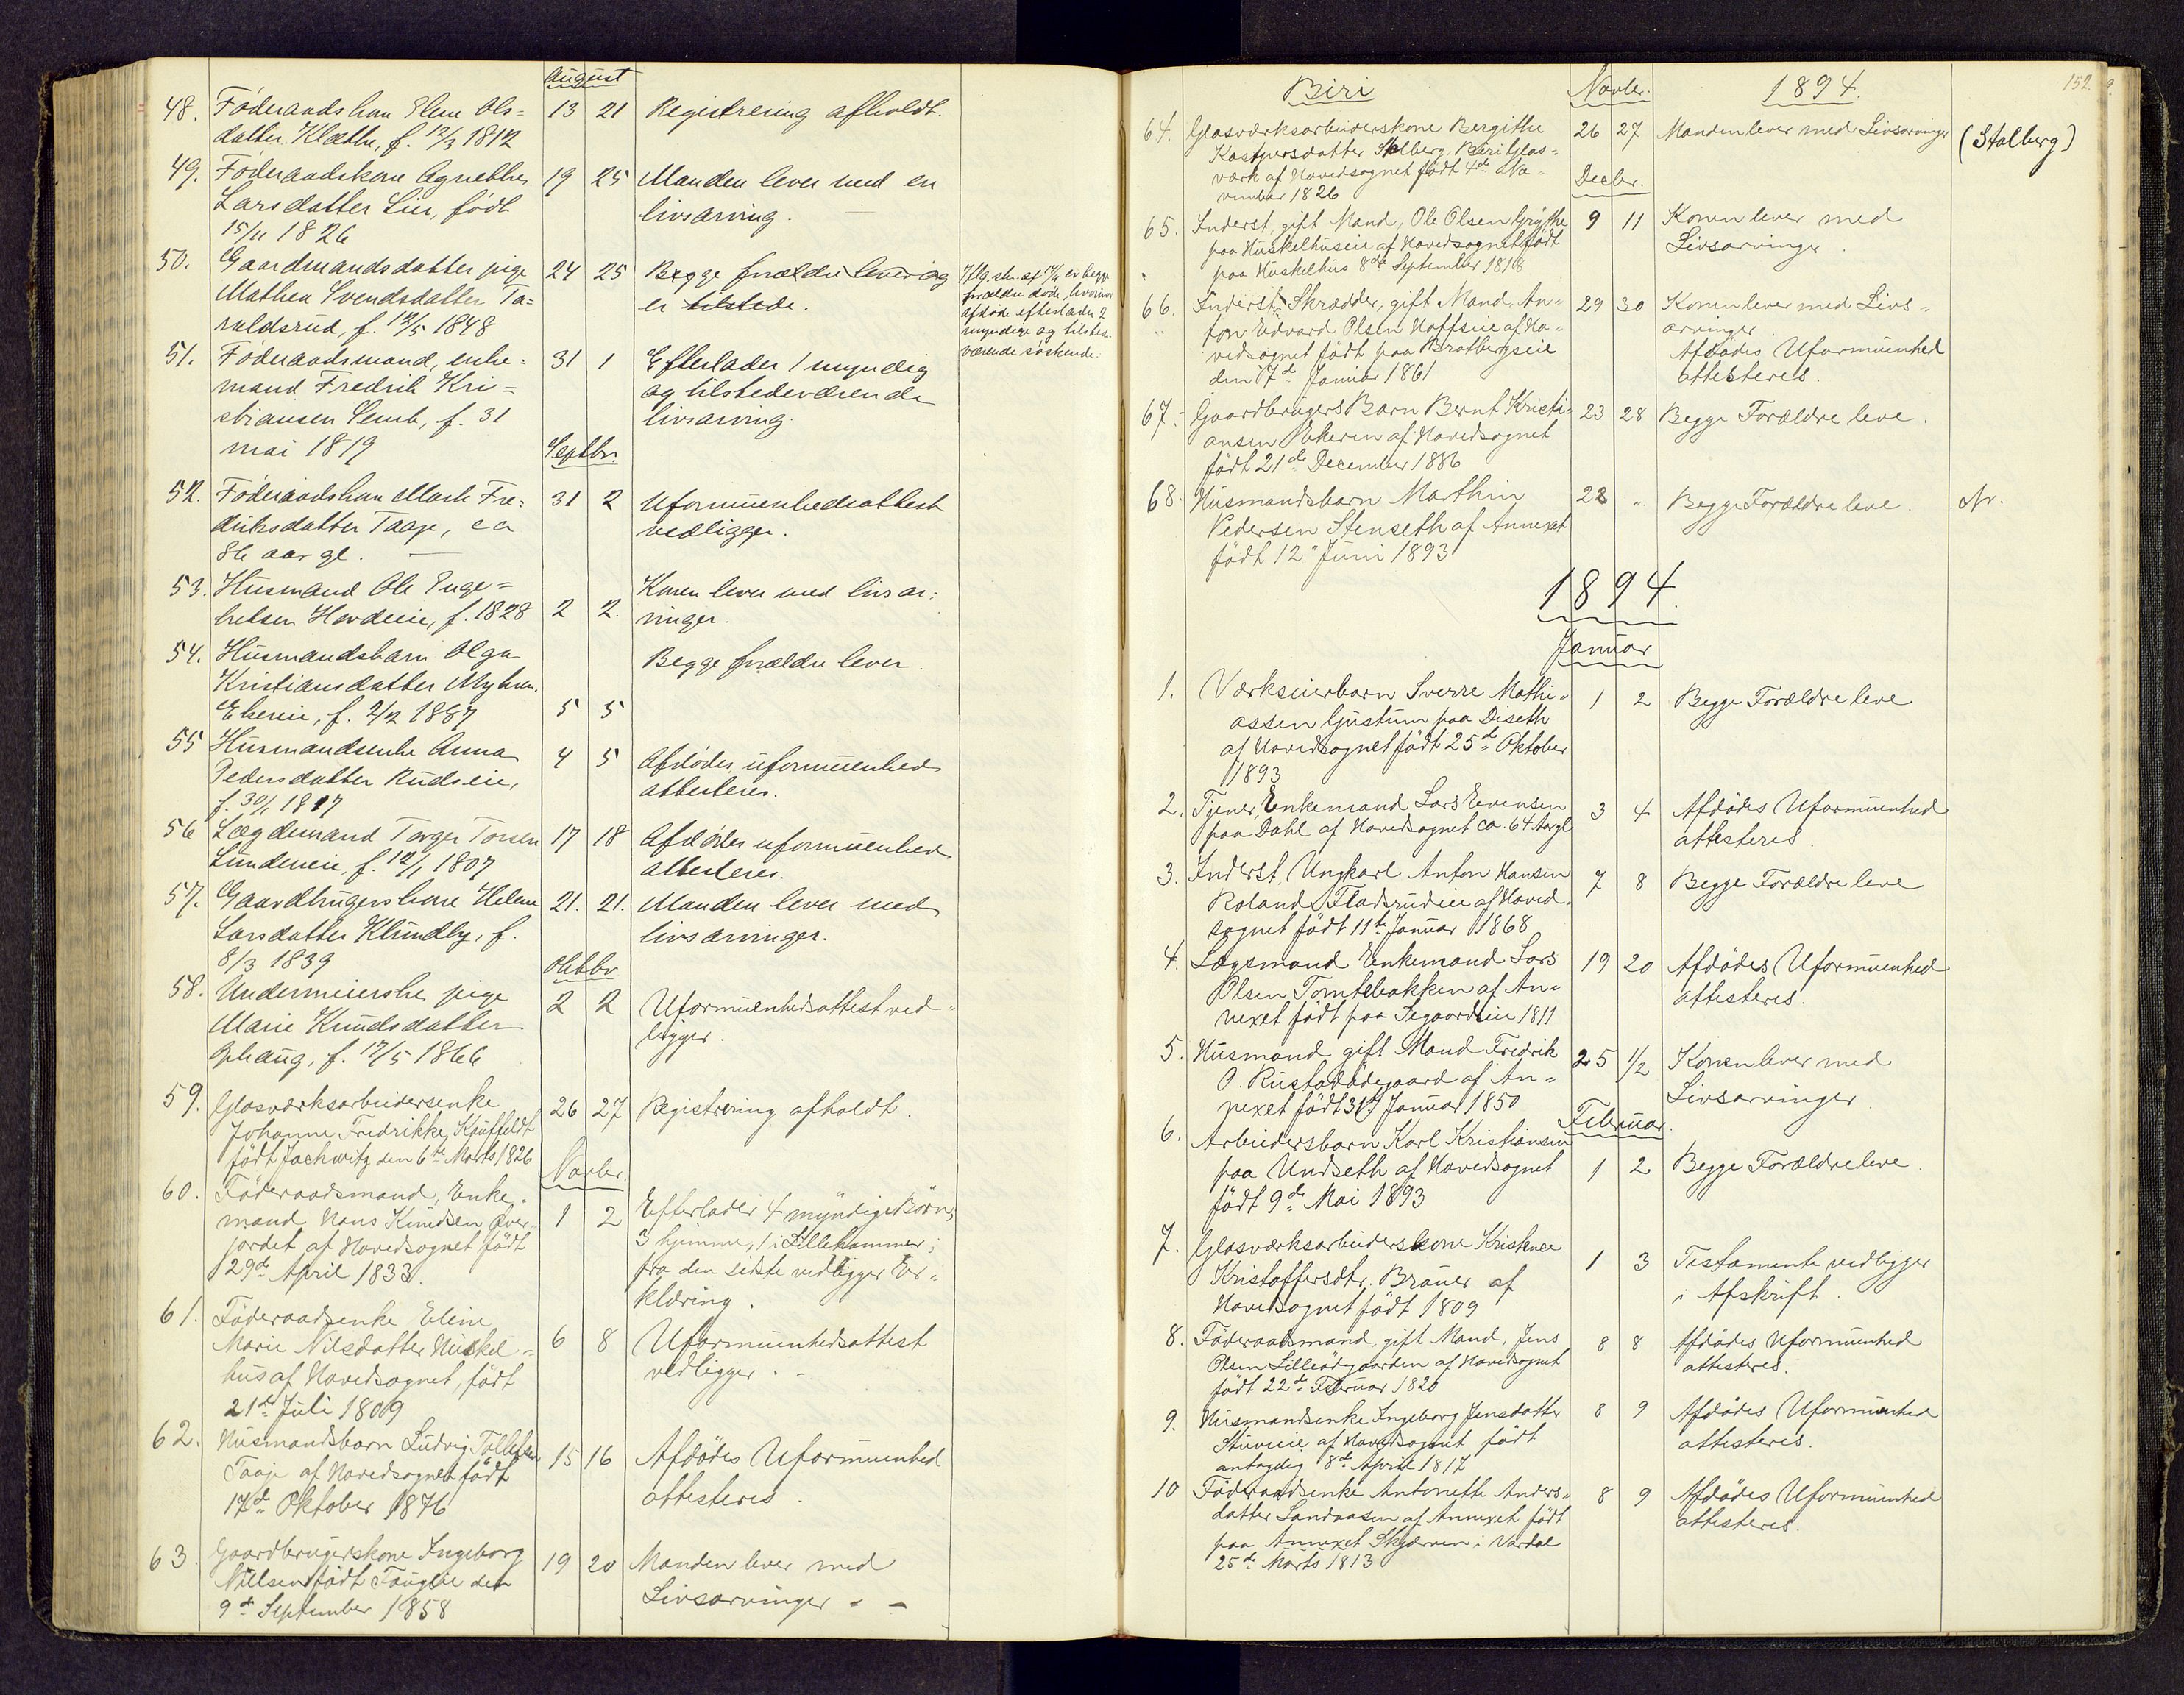 August
48. Föderaadskone Elene Ols=
datter Klæthe, f. 12/3 1812
13 21 Registrering afholdt.
49. Föderaadskone Agnethe
Larsdatter Lier, födt
15/11 1826
19 25 Manden lever med en
livsarving.
50. Gaardmandsdatter pige
Mathea Svendsdatter Ta=
raldsrud, f. 12/5 1848
24 25 Begge forældre lever og
er tilstede.
Iflg. skr. af 17/4 er begge
forældre døde, hvorimod
afdøde efterlader 2
myndige og tilstede-
værende søskende.
51. Föderaadsmand, enke=
mand Fredrik Kri=
stiansen Semb, f. 31
mai 1819
31 1 Efterlader 1 myndig
og tilstedeværende
livsarving.
Septbr.
52. Föderaadskone Marte Fre=
driksdatter Taaje, ca
86 aar gl.
31 2 Uformuenhedsattest
vedligger.
53. Husmand Ole Enge=
bretsen Hovdeeie, f. 1828
2 2. Konen lever med livsar=
vinger.
54. Husmandsbarn Olga
Kristiansdatter Myhren,
Ekereie, f. 2/12 1887
5 5 Begge forældre lever.
55 Husmandsenke Anna
Pedersdatter Rudseie,
f. 30/1 1817
4 5 Afdödes uformuenhed
attesteres.
56 Lægdemand Torger Torsen
Lundeneie, f. 12/1 1807
17 18 Afdödes uformuenhed
attesteres.
57. Gaardbrugerskone Helene
Larsdatter Klundby, f.
8/3 1839
21. 21. Manden lever med
livsarvinger.
Oktbr
58. Undermeierske pige
Marie Knudsdatter
Ophaug, f. 17/5 1866
2 2 Uformuenhedsattest ved=
ligger.
59. Glasværksarbeidersenke
Johanne Fredrikke Kauffeldt
födt Jachwitz den 6te Marts 1826
26 27 Registrering afholdt.
Novbr.
60. Föderaadsmand, Enke=
mand Hans Knudsen Över=
jordet af Hovedsognet födt
29de April 1833.
1 2 Efterlader 4 myndige Börn,
3 hjemme, 1 i Lillehammer;
fra den sidste vedligger Er=
klæring.
61. Föderaadsenke Eline
Marie Nilsdatter Huskel=
hus af Hovedsognet, födt
21de Juli 1809
6 8 Uformuenhedsattest
vedligger.
62. Husmandsbarn Ludvig Tollefsen
Taaje af Hovedsognet födt
17de Oktober 1876
15 16 Afdödes Uformuenhed
attesteres.
63. Gaardbrugerskone Ingeborg
Nillsen födt Fauglie den
9de September 1858
19 20 Manden lever med
Livsarvinger
152.
Biri Novbr. 1894.
64. Glasværksarbeiderskone Bergithe
Kaspersdatter Stalberg Biri Glas=
værk af Hovedsognet födt 4de No=
vember 1826
26 27 Manden lever med Livsarvinger (Stalberg)
Decbr.
65. Inderst, gift Mand, Ole Olsen Grythe
paa Huskelhuseie af Hovedsognet födt
paa Huskelhus 8de September 1818
9 11 Konen lever med
Livsarvinger.
66. Inderst, Skrædder, gift Mand, An=
ton Edvard Olsen Hoffseie af Ho=
vedsognet födt paa Bratbergseie
den 17de Januar 1861
29 30 Konen lever med Livs=
arvinger
Afdödes Uformuenhed
attesteres.
67. Gaardbrugers Barn Bernt Kristi=
ansen Ekeren af Hovedsognet
födt 21de December 1886
23 28 Begge Forældre leve.
68. Husmandsbarn Marthin
Pedersen Stenseth af Annexet
födt 12te Juni 1893
28 " Begge Forældre leve. Nr.
1894.
Januar
1. Værkseierbarn Sverre Mathi=
assen Gjustum paa Diseth
af Hovedsognet födt 25de Oktober
1893
1 2 Begge Forældre leve
2. Tjener, Enkemand Lars Evensen
paa Dahl af Hovedsognet ca. 64 Aar gl
3 4 Afdödes Uformuenhed
attesteres.
3. Inderst, Ungkarl Anton Hansen
Roland Fladsrudeie af Hoved=
sognet födt 11te Januar 1868
7 8 Begge Forældre leve
4. Lægsmand Enkemand Lars
Olsen Tomtebakken af An=
nexet födt paa Segaardseie 1811
19 20 Afdödes Uformuenhed
attesteres.
5. Husmand gift Mand Fredrik
O. Rustadödegaard af An=
nexet födt 31te Januar 1850
25 1/2 Konen lever med
Livsarvinger
Februar.
6. Arbeidersbarn Karl Kristiansen
paa Undseth af Hovedsognet
födt 9de Mai 1893
1 2 Begge Forældre leve.
7. Glasværksarbeiderskone Kristence
Kristoffersdtr. Brauer af
Hovedsognet födt 1809
1 3 Testamente vedligger
i Afskrift.
8. Föderaadsmand gift Mand, Jens
Olsen Lilleödegaarden af Hovedsognet
födt 22de Februar 1820
8 8 Afdödes Uformuenhed
attesteres.
9. Husmandsenke Ingeborg Jensdatter
Stuveeie af Hovedsognet födt
antagelig 8de April 1817
8 9 Afdödes Uformuenhed
attesteres.
10 Föderaadsenke Antonette Anders=
datter Sandaasen af Annexet födt
paa Annexet Skjærven i Vardal
25de Marts 1813
8 9 Afdödes Uformuenhed
attesteres.